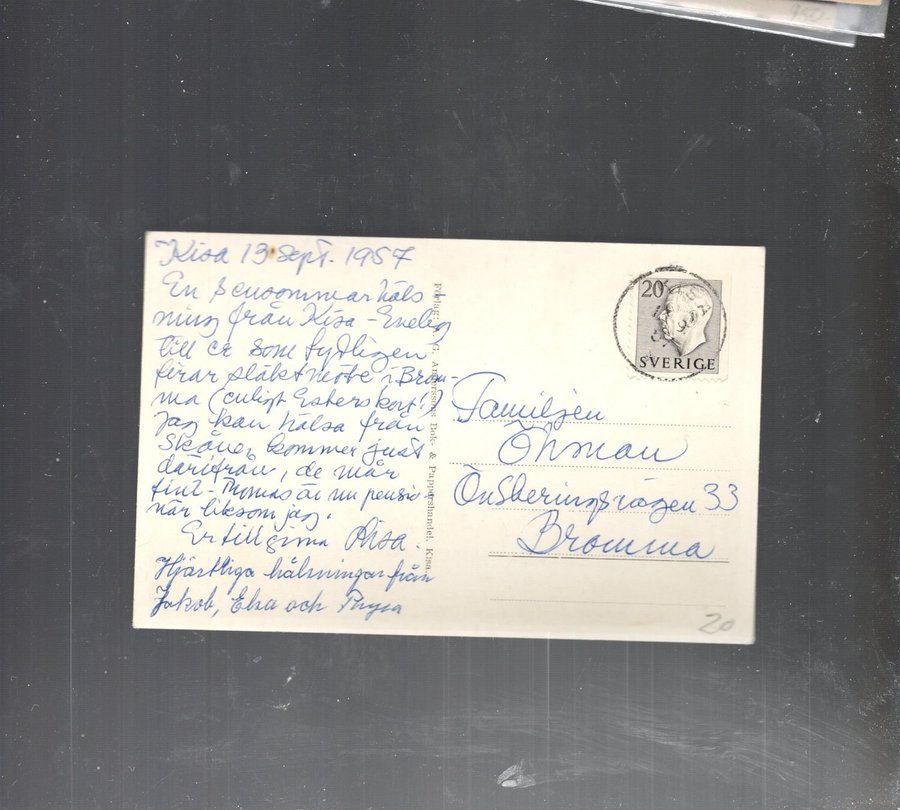 Kisa 13 Sept. 1957
En sensommarhäls
ning från Kisa - Eneby
till er som tydligen
firar släktmöte i Brom-
ma (enligt Esters kort!)
Jag kan hälsa från
Skåne, kommer just
därifrån, de mår
fint - Thomas är nu pensio-
när liksom jag.
Er tillgivna
Hjärtliga hälsningar från
Jakob, Elsa och
Förlag: G. Anderssons Bok- & Pappershandel, Kisa.
20
SVERIGE
Familjen
Öhman
33
Bromma
20